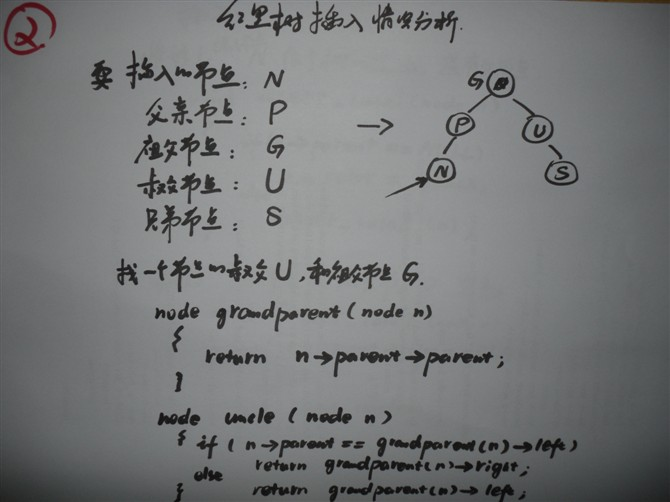 ②
红黑树插入情况分析.
要插入的节点: N
父亲节点: P
祖父节点: G
叔父节点: U
兄弟节点: S
→
G
P
U
N
S
找一个节点的叔父U,和祖父节点G.
node grandparent(node n)
{
return n→parent→parent;
}
node uncle(node n)
{ if(n→parent == grandparent(n)→left)
return grandparent(n)→right;
else
} return grandparent(n)→left;